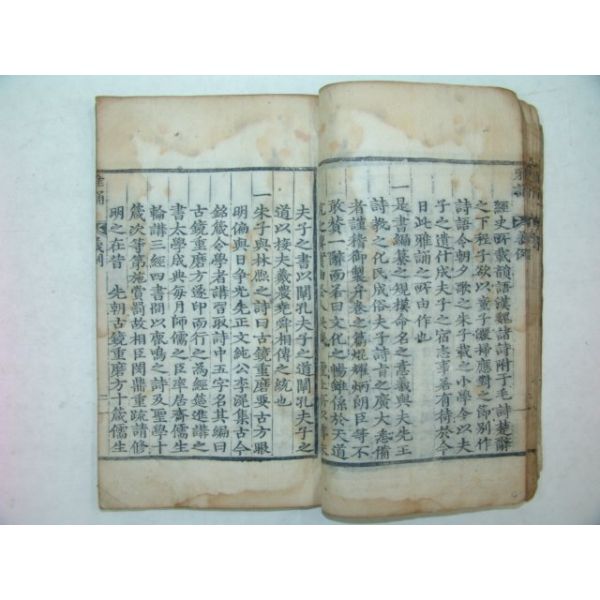 雅誦
義例
經史所載韻語漢魏諸詩附于毛詩楚辭
之下程子欲以童子灑掃應對之節別作
詩語令朝夕歌之朱子載之小學今以夫
子之遺什成夫子之宿志事若有待於今
日此雅誦之所由作也
一是書編纂之規模命名之意義與夫先王
詩教之化民成俗夫子詩旨之廣大悉備
者謹稽御製弁卷之篇焜耀炳朗臣等不
敢贊一辭而若曰文化之暢雖係於天道
夫子之書以闡孔夫子之道闡孔夫子之
道以接夫羲農堯舜相傳之統也
一朱子與林熈之詩曰古鏡重磨要古方眼
明偏與日爭光先正文純公李滉集古今
銘箴令學者講習取詩中五字名其編曰
古鏡重磨方遂印而行之爲經筵進講之
書太學成典每月師儒之臣率居齋儒生
輪講三經四書間以鹿鳴之詩及聖學十
箴次等第施賞罰故相臣閔鼎重疏請修
明之在昔 先朝古鏡重磨方十箴儒生
雅誦
義例
二